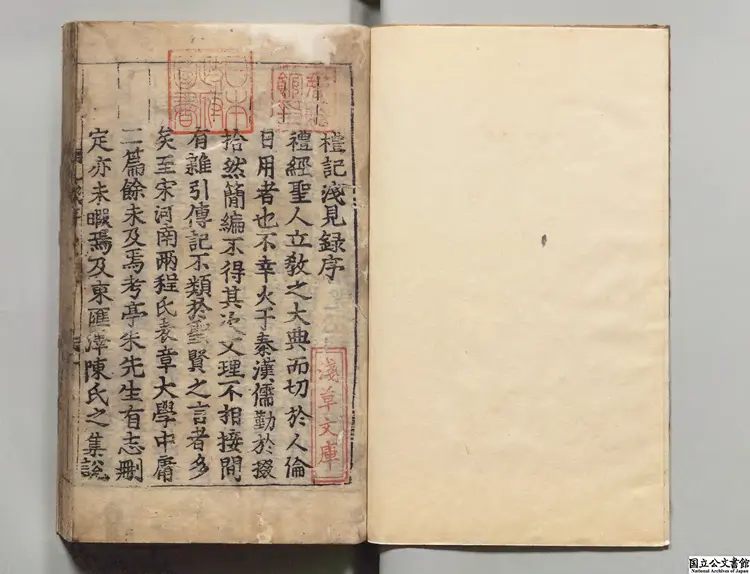 禮記淺見録序
禮經聖人立教之大典而切於人倫
日用者也不幸火于秦漢儒勤於掇
拾然簡編不得其次文理不相接間
有雜引傳記不類於聖賢之言者多
矣至宋河南兩程氏表章大學中庸
二篇餘未及焉考亭朱先生有志刪
定亦未暇焉及東匯澤陳氏之集說
淺草文庫
日本政府圖書
国立公文書館
National Archives of Japan